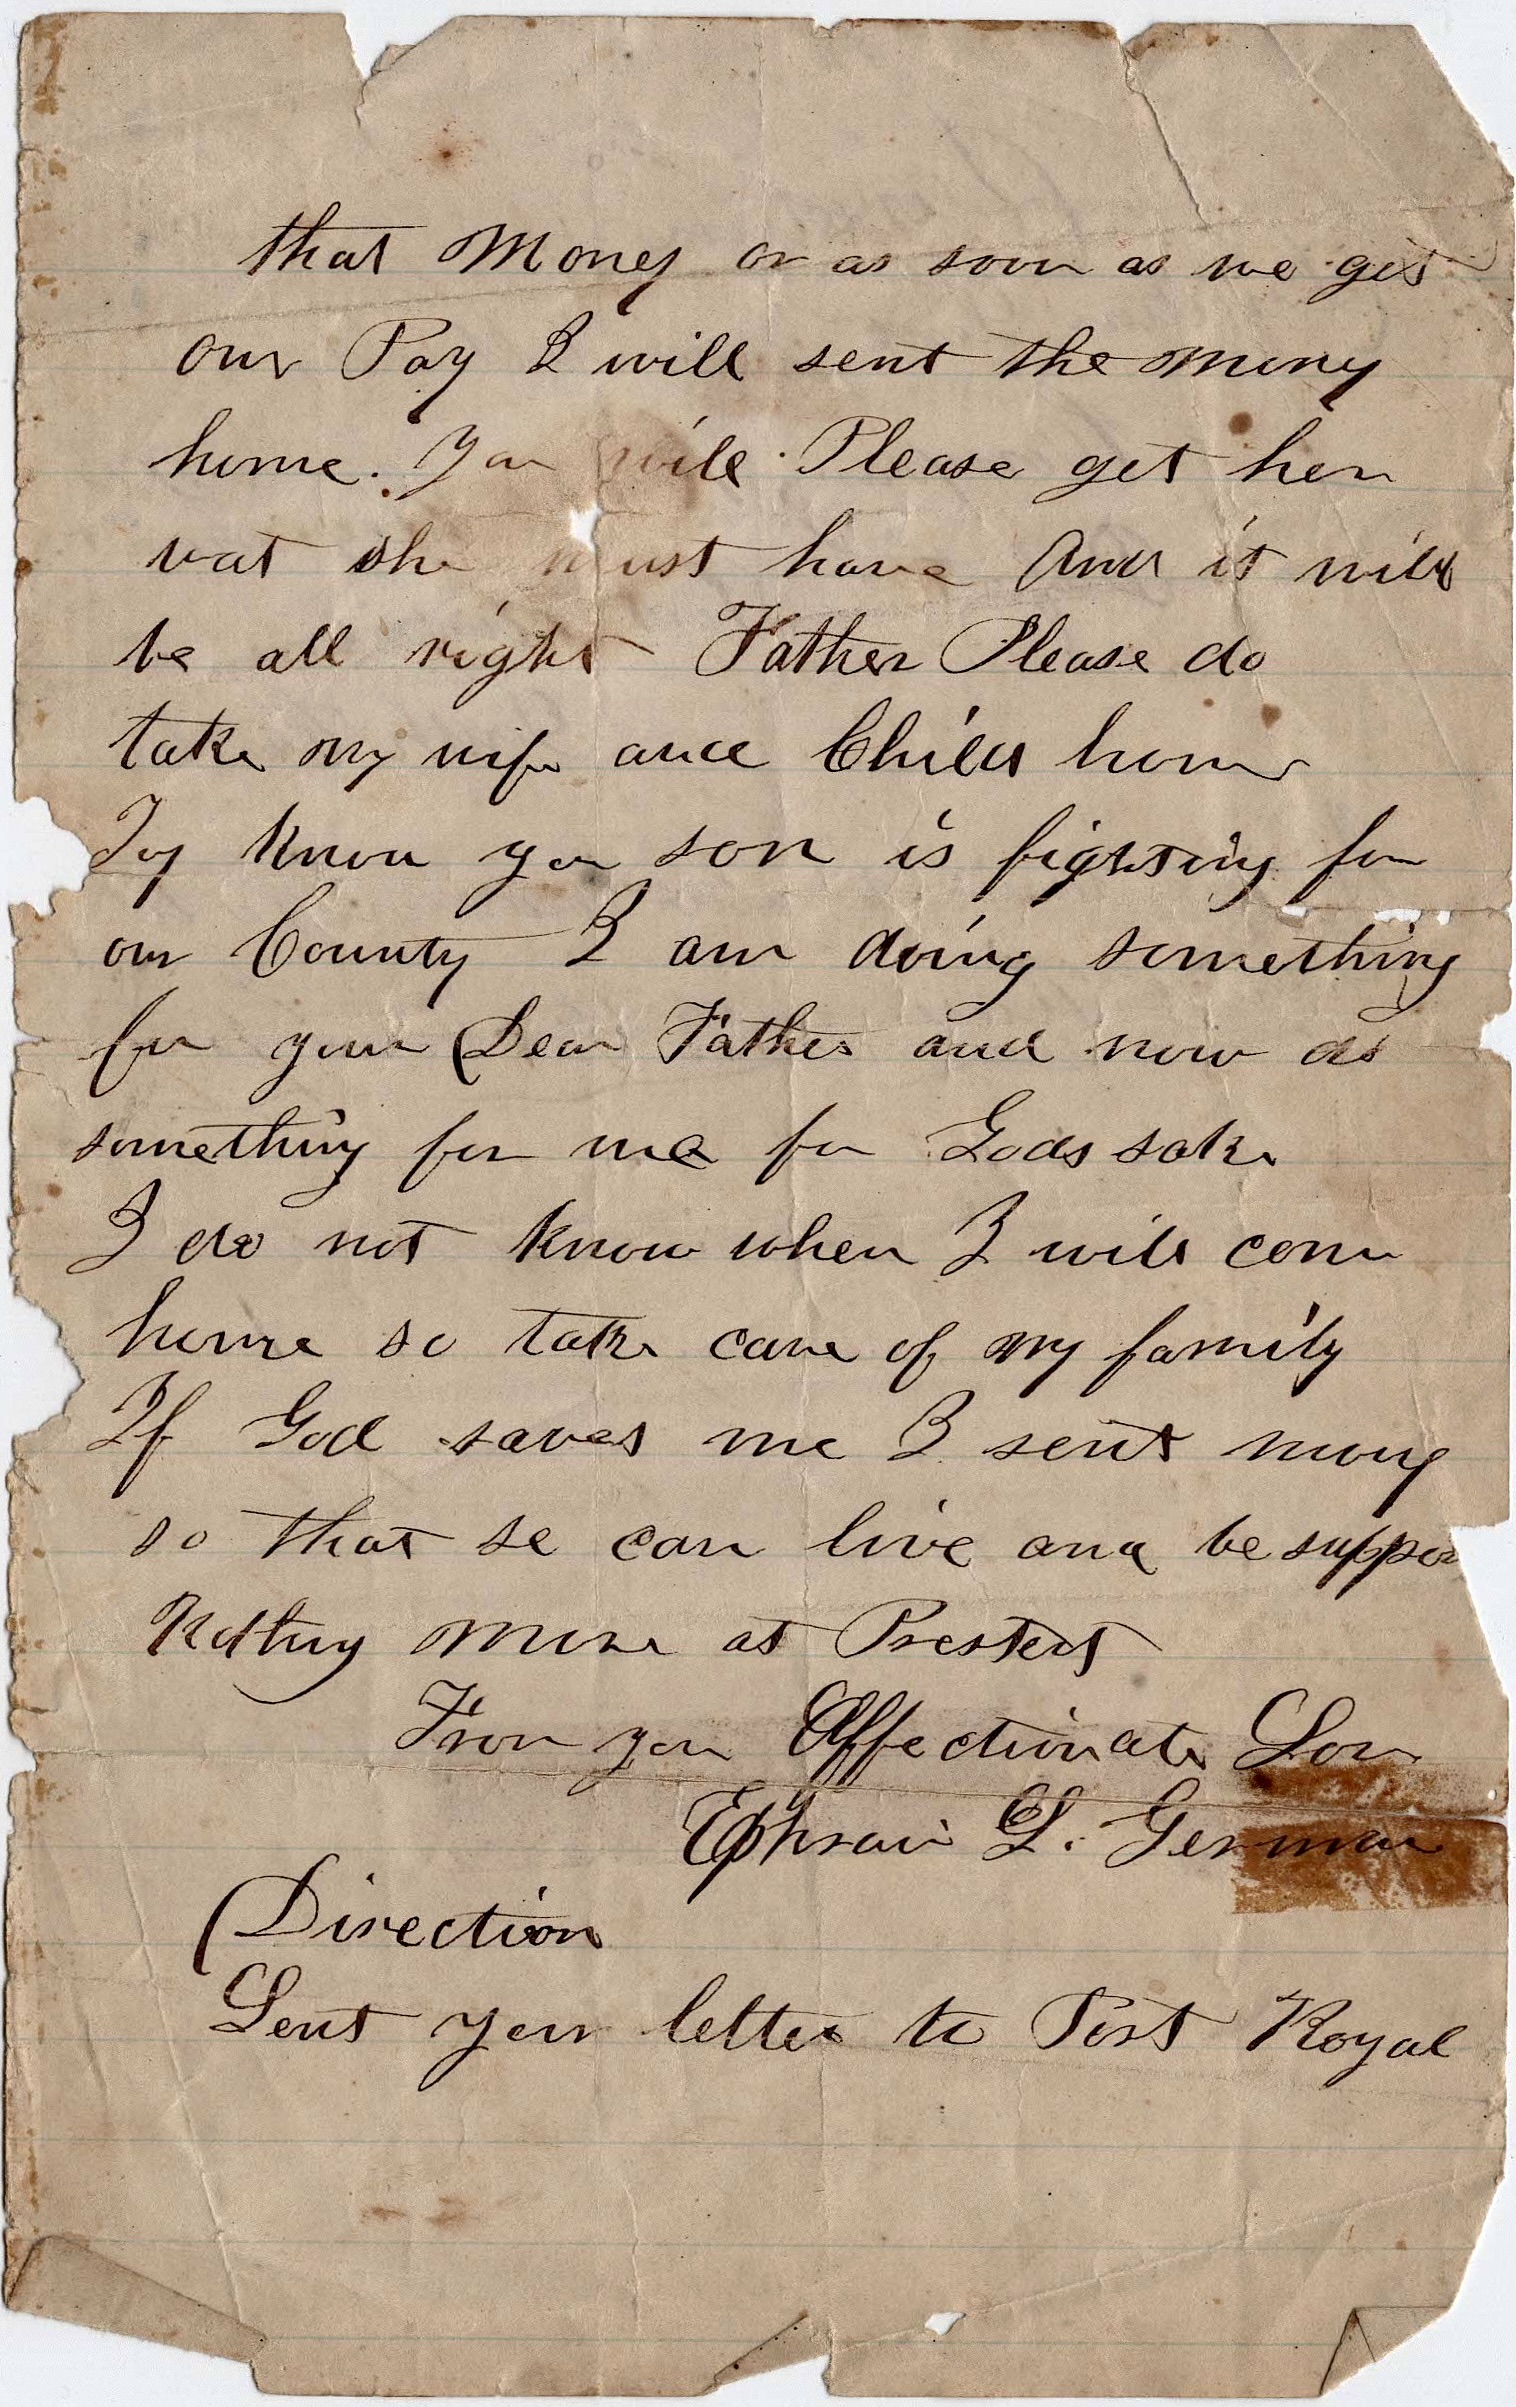 that Money or as soon as we get
our Pay I will sent the mony
home. You will Please get her
wat she must have And it will
be all right Father Please do
take my wife and Child home
know you son is fighting for
our County I am doing something
for your Dear Father and now do
something for me for Gods sake
I do not know when I will come
home so take care of my family
If God saves me I sent mony
so that se can live and be suppor
more at
From your Affectionate Son
Ephraim L. German
Direction
Sent your letter to Port Royal